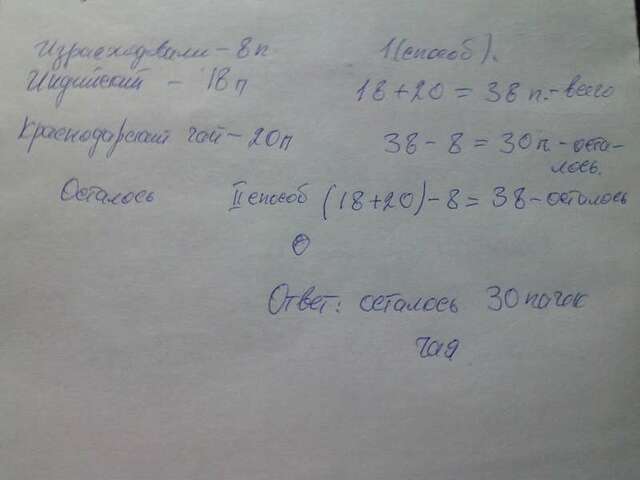 Израсходовали - 8 п.
Индийский - 18 п
Краснодарский чай - 20 п
Осталось
1 (способ).
18 + 20 = 38 п. - всего
38 - 8 = 30 п - оста-
лось.
II способ (18+20) - 8 = 38 - осталось
Ответ: осталось 30 пачек
чая